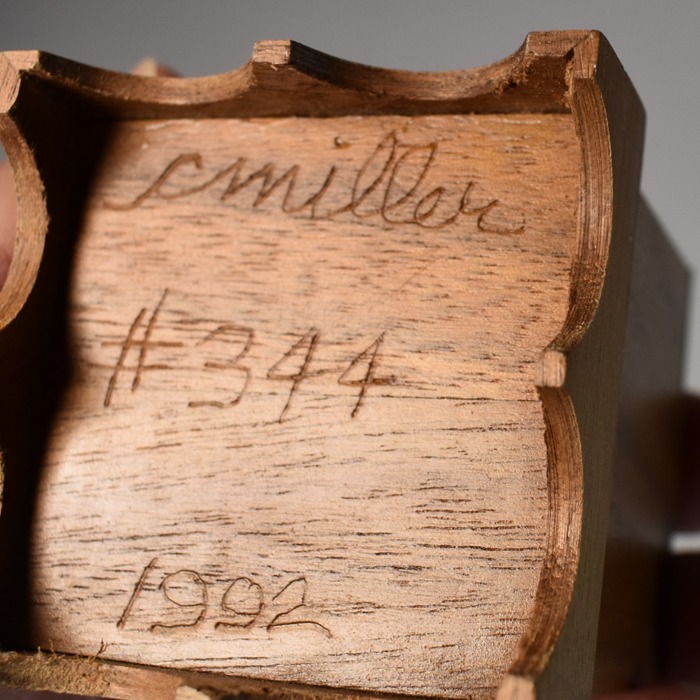 cmiller
#344
1992